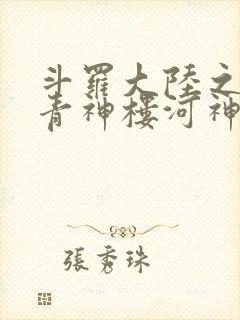 斗羅大陸之
青神樓河神
張秀珠